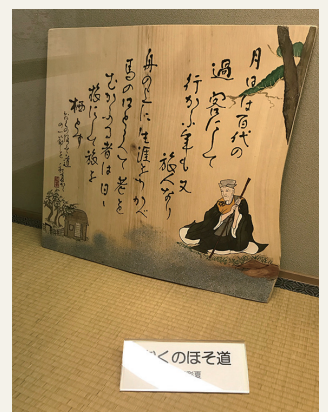 月日は百代の
過客にして
行かふ年も又
旅人なり
舟の上に生涯をうかべ
馬の口とらへて老を
むかふる者は日〻
旅にして旅を
栖とす
くのほそ道